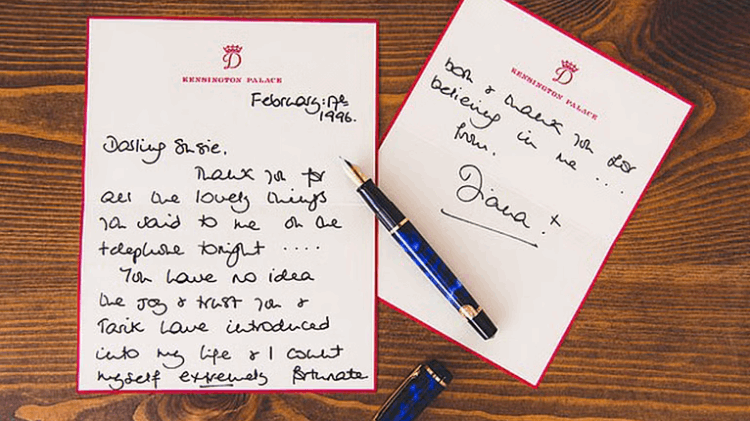 D
KENSINGTON PALACE
February: 17th
1996.
Darling Susie,
Thank you for
all the lovely things
you said to me on the
telephone tonight ....
You have no idea
the joy & trust you &
Tarik have introduced
into my life & I count
myself extremely fortunate
D
KENSINGTON PALACE
& thank you for
believing in me ....
from,
Diana. x